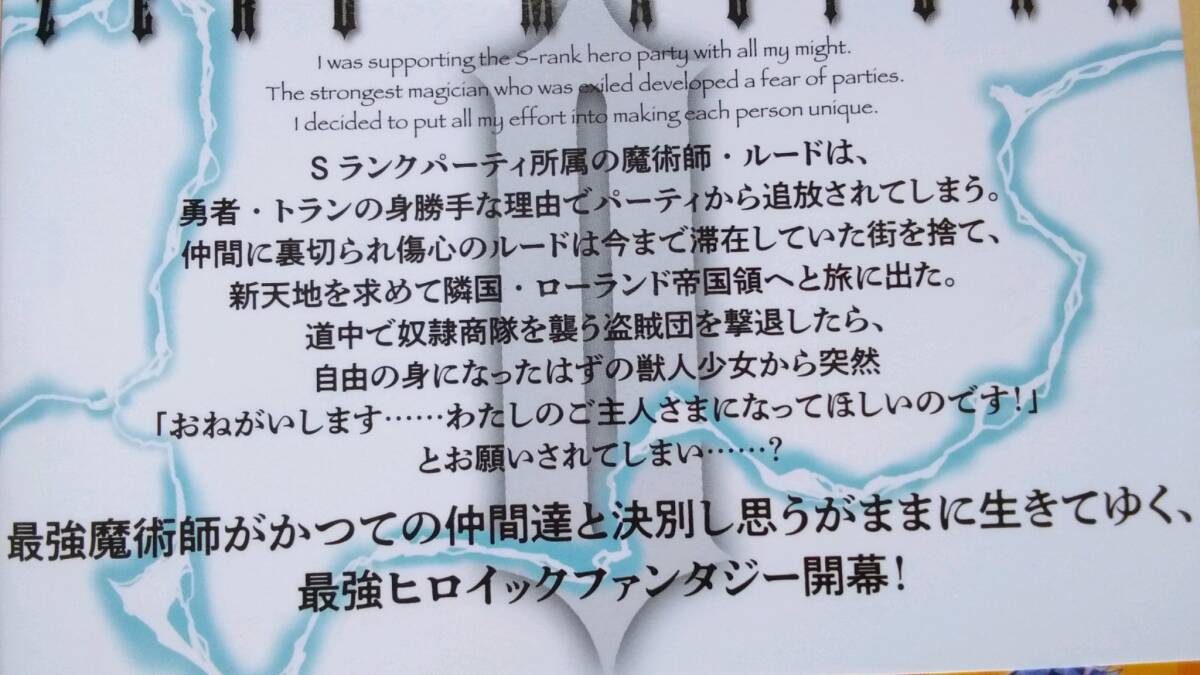 I was supporting the S-rank hero party with all my might.
The strongest magician who was exiled developed a fear of parties.
I decided to put all my effort into making each person unique.
Sランクパーティ所属の魔術師・ルードは、
勇者・トランの身勝手な理由でパーティから追放されてしまう。
仲間に裏切られ傷心のルードは今まで滞在していた街を捨て、
新天地を求めて隣国・ローランド帝国領へと旅に出た。
道中で奴隷商隊を襲う盗賊団を撃退したら、
自由の身になったはずの獣人少女から突然
「おねがいします……わたしのご主人さまになってほしいのです!」
とお願いされてしまい……?
最強魔術師がかつての仲間達と決別し思うがままに生きてゆく、
最強ヒロイックファンタジー開幕!